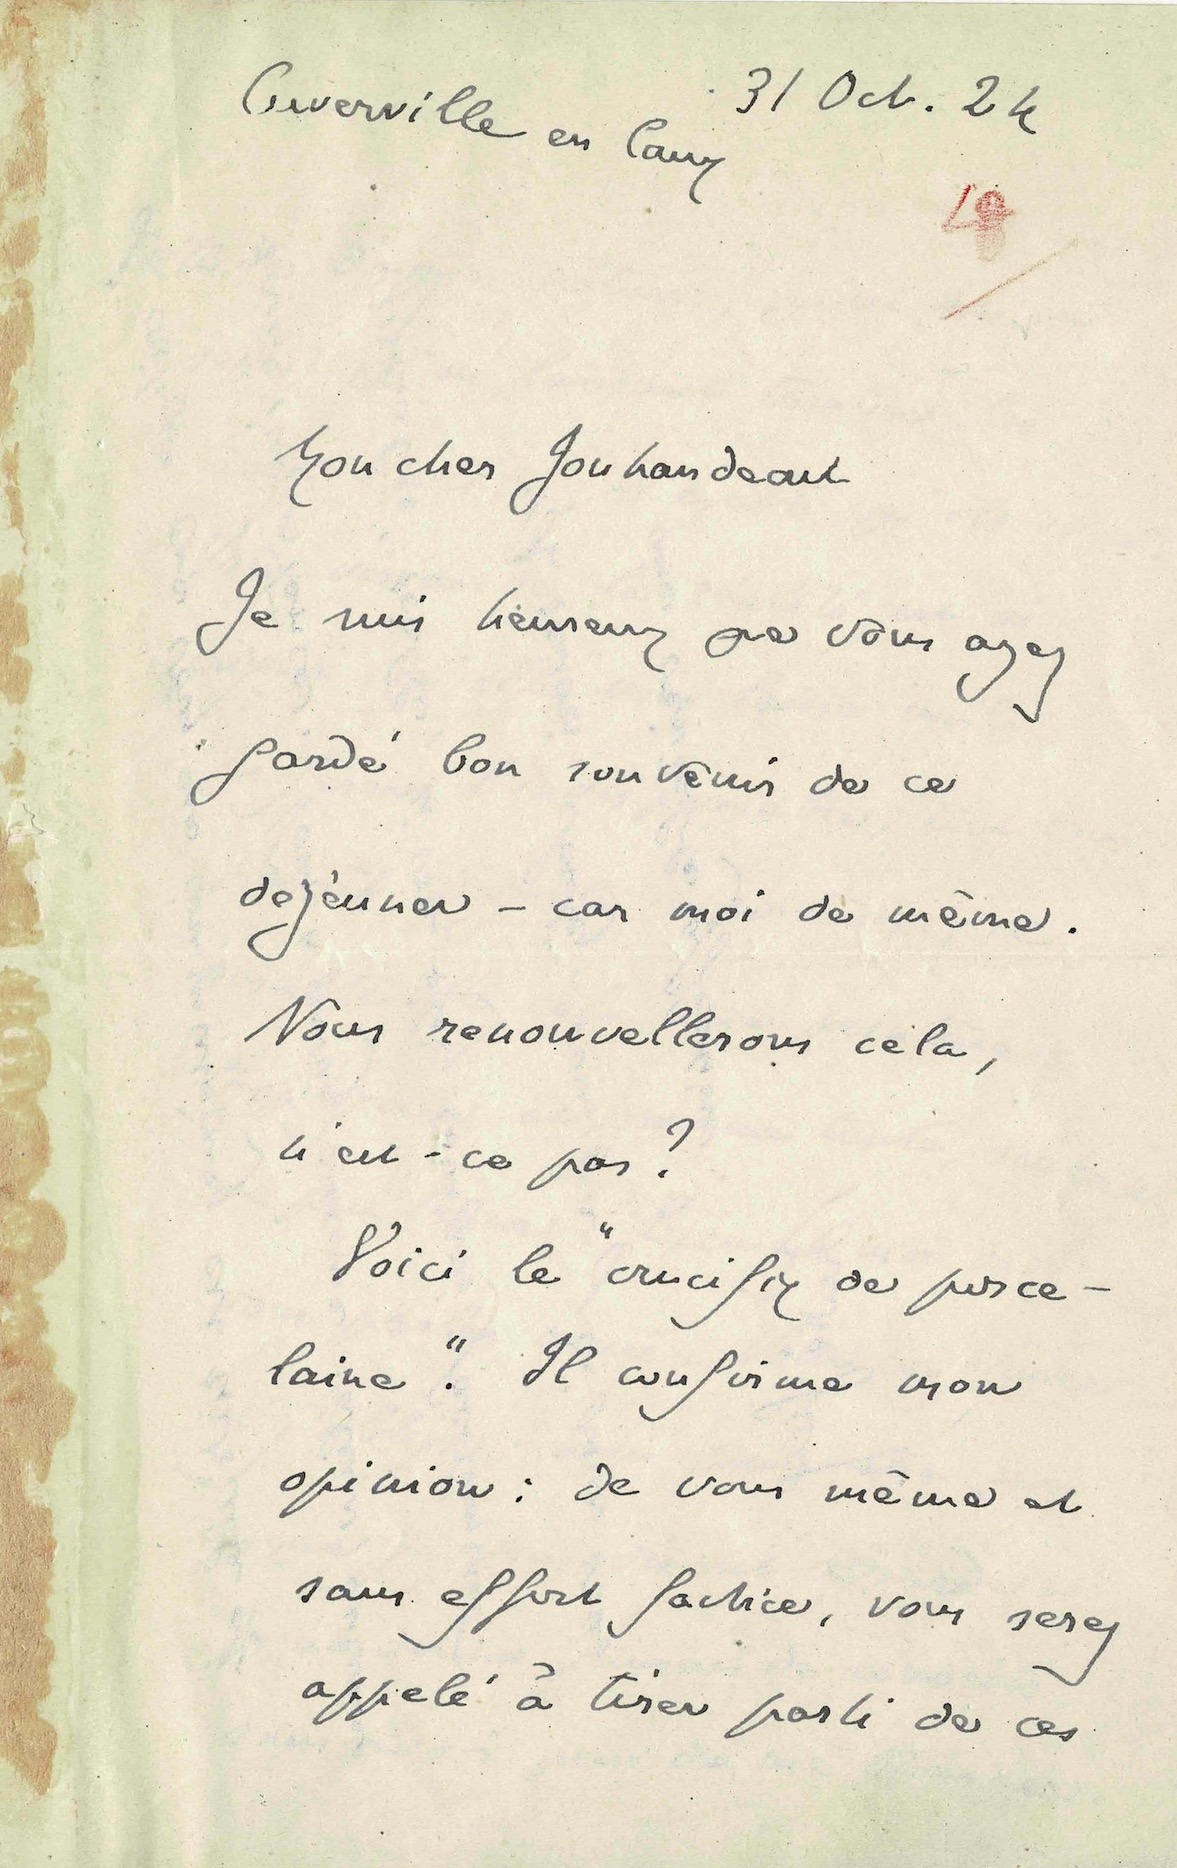 Cuverville en Caux
31 Oct. 24
Mon cher Jouhandeau
Je suis heureux que vous ayez
gardé bon souvenir de ce
dejeuner – car moi de même.
Nous renouvellerons cela,
n'est-ce pas ?
Voici le "crucifix de porce-
laine". Il confirme mon
opinion : de vous même et
sans effort factice, vous serez
appelé à tirer parti de ces